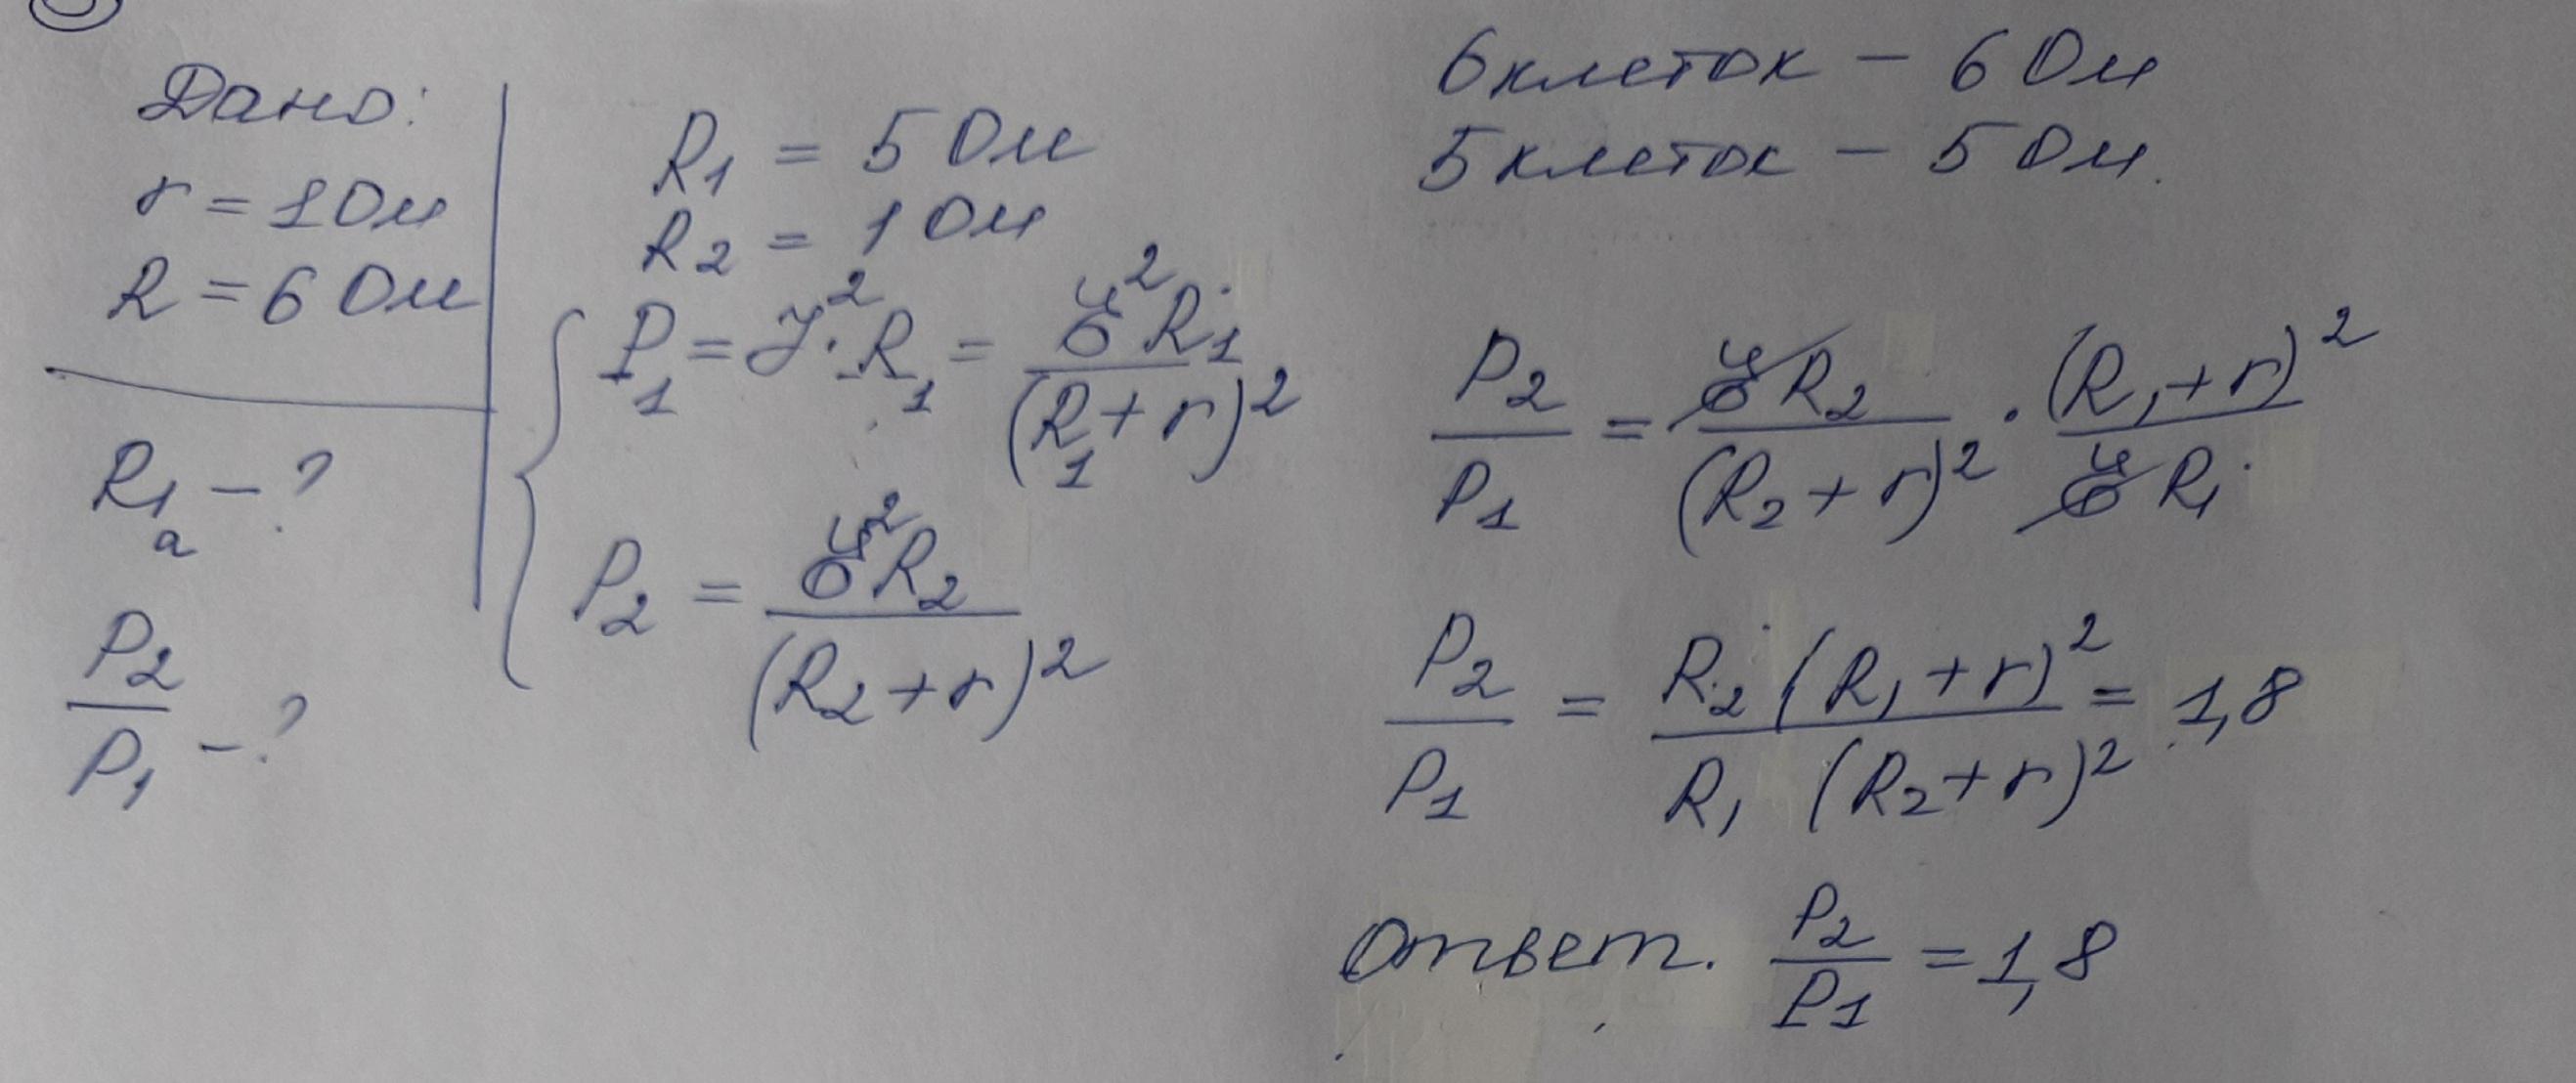 Дано:
r = 1 Ом
R = 6 Ом
R₁ₐ – ?
P₂/P₁ – ?
R₁ = 5 Ом
R₂ = 1 Ом
P₁ = J²·R₁ = ℰ²R₁/(R₁+r)²
P₂ = ℰ²R₂/(R₂+r)²
6 клеток – 6 Ом
5 клеток – 5 Ом.
P₂/P₁ = ℰR₂/(R₂+r)² · (R₁+r)²/ℰR₁
P₂/P₁ = R₂(R₁+r)²/R₁(R₂+r)² = 1,8
Ответ. P₂/P₁ = 1,8